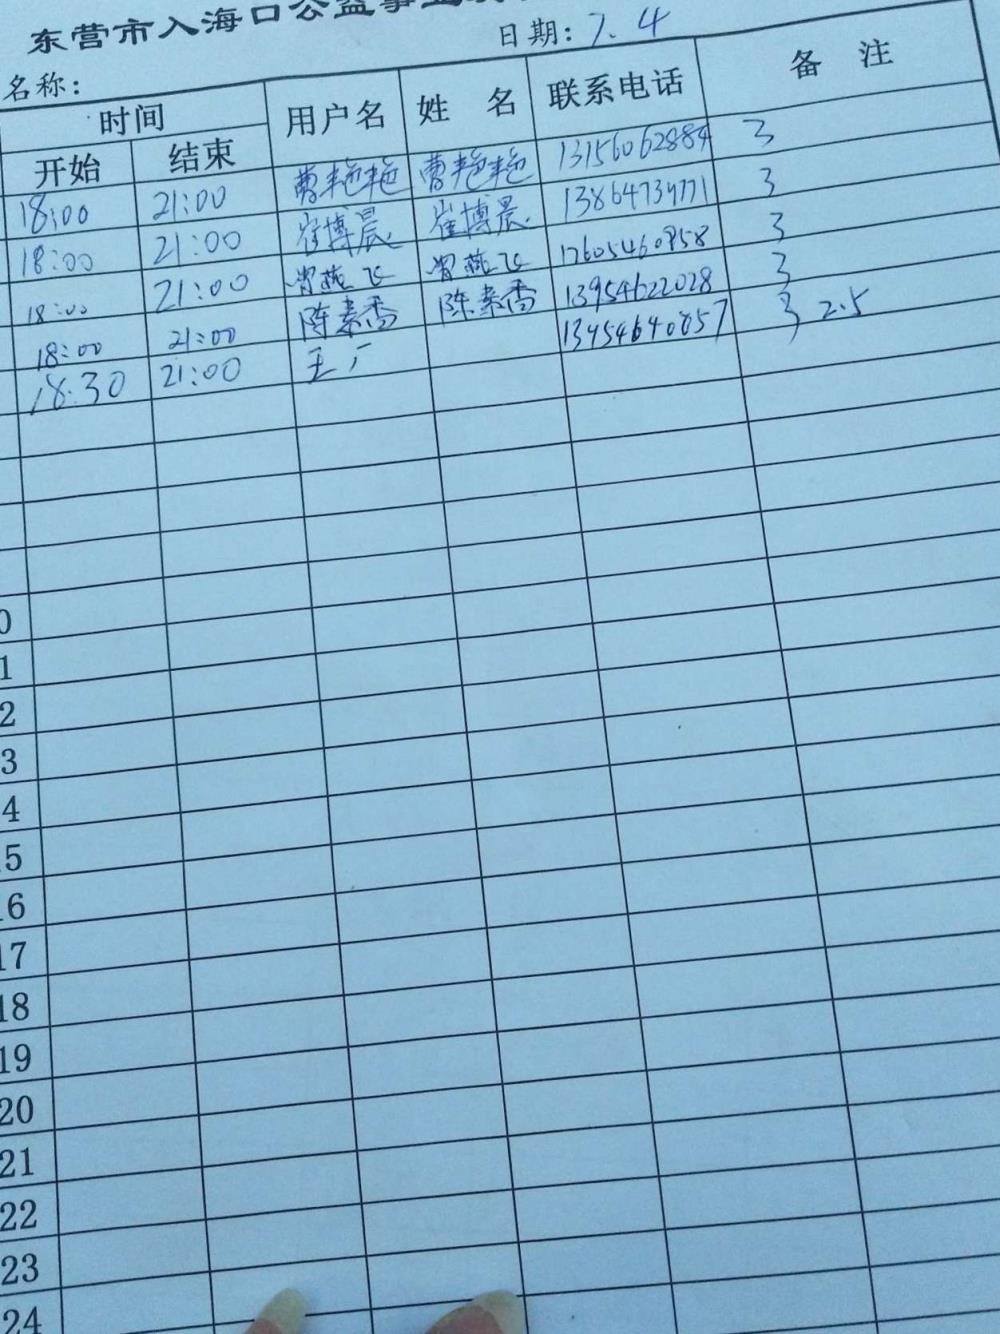 东营市入海口公益事业
日期: 7.4
名称:
时间 用户名 姓 名 联系电话 备 注
开始 结束
18:00 21:00 曹艳艳 曹艳艳 13156062884 3
18:00 21:00 崔博晨 崔博晨 13864734771 3
18:00 21:00 燕飞 燕飞 17605460858 3
18:00 21:00 陈素香 陈素香 13954622028 3
18:30 21:00 王广 13954640857 3 2.5
0
1
2
3
4
5
16
17
18
19
20
21
22
23
24